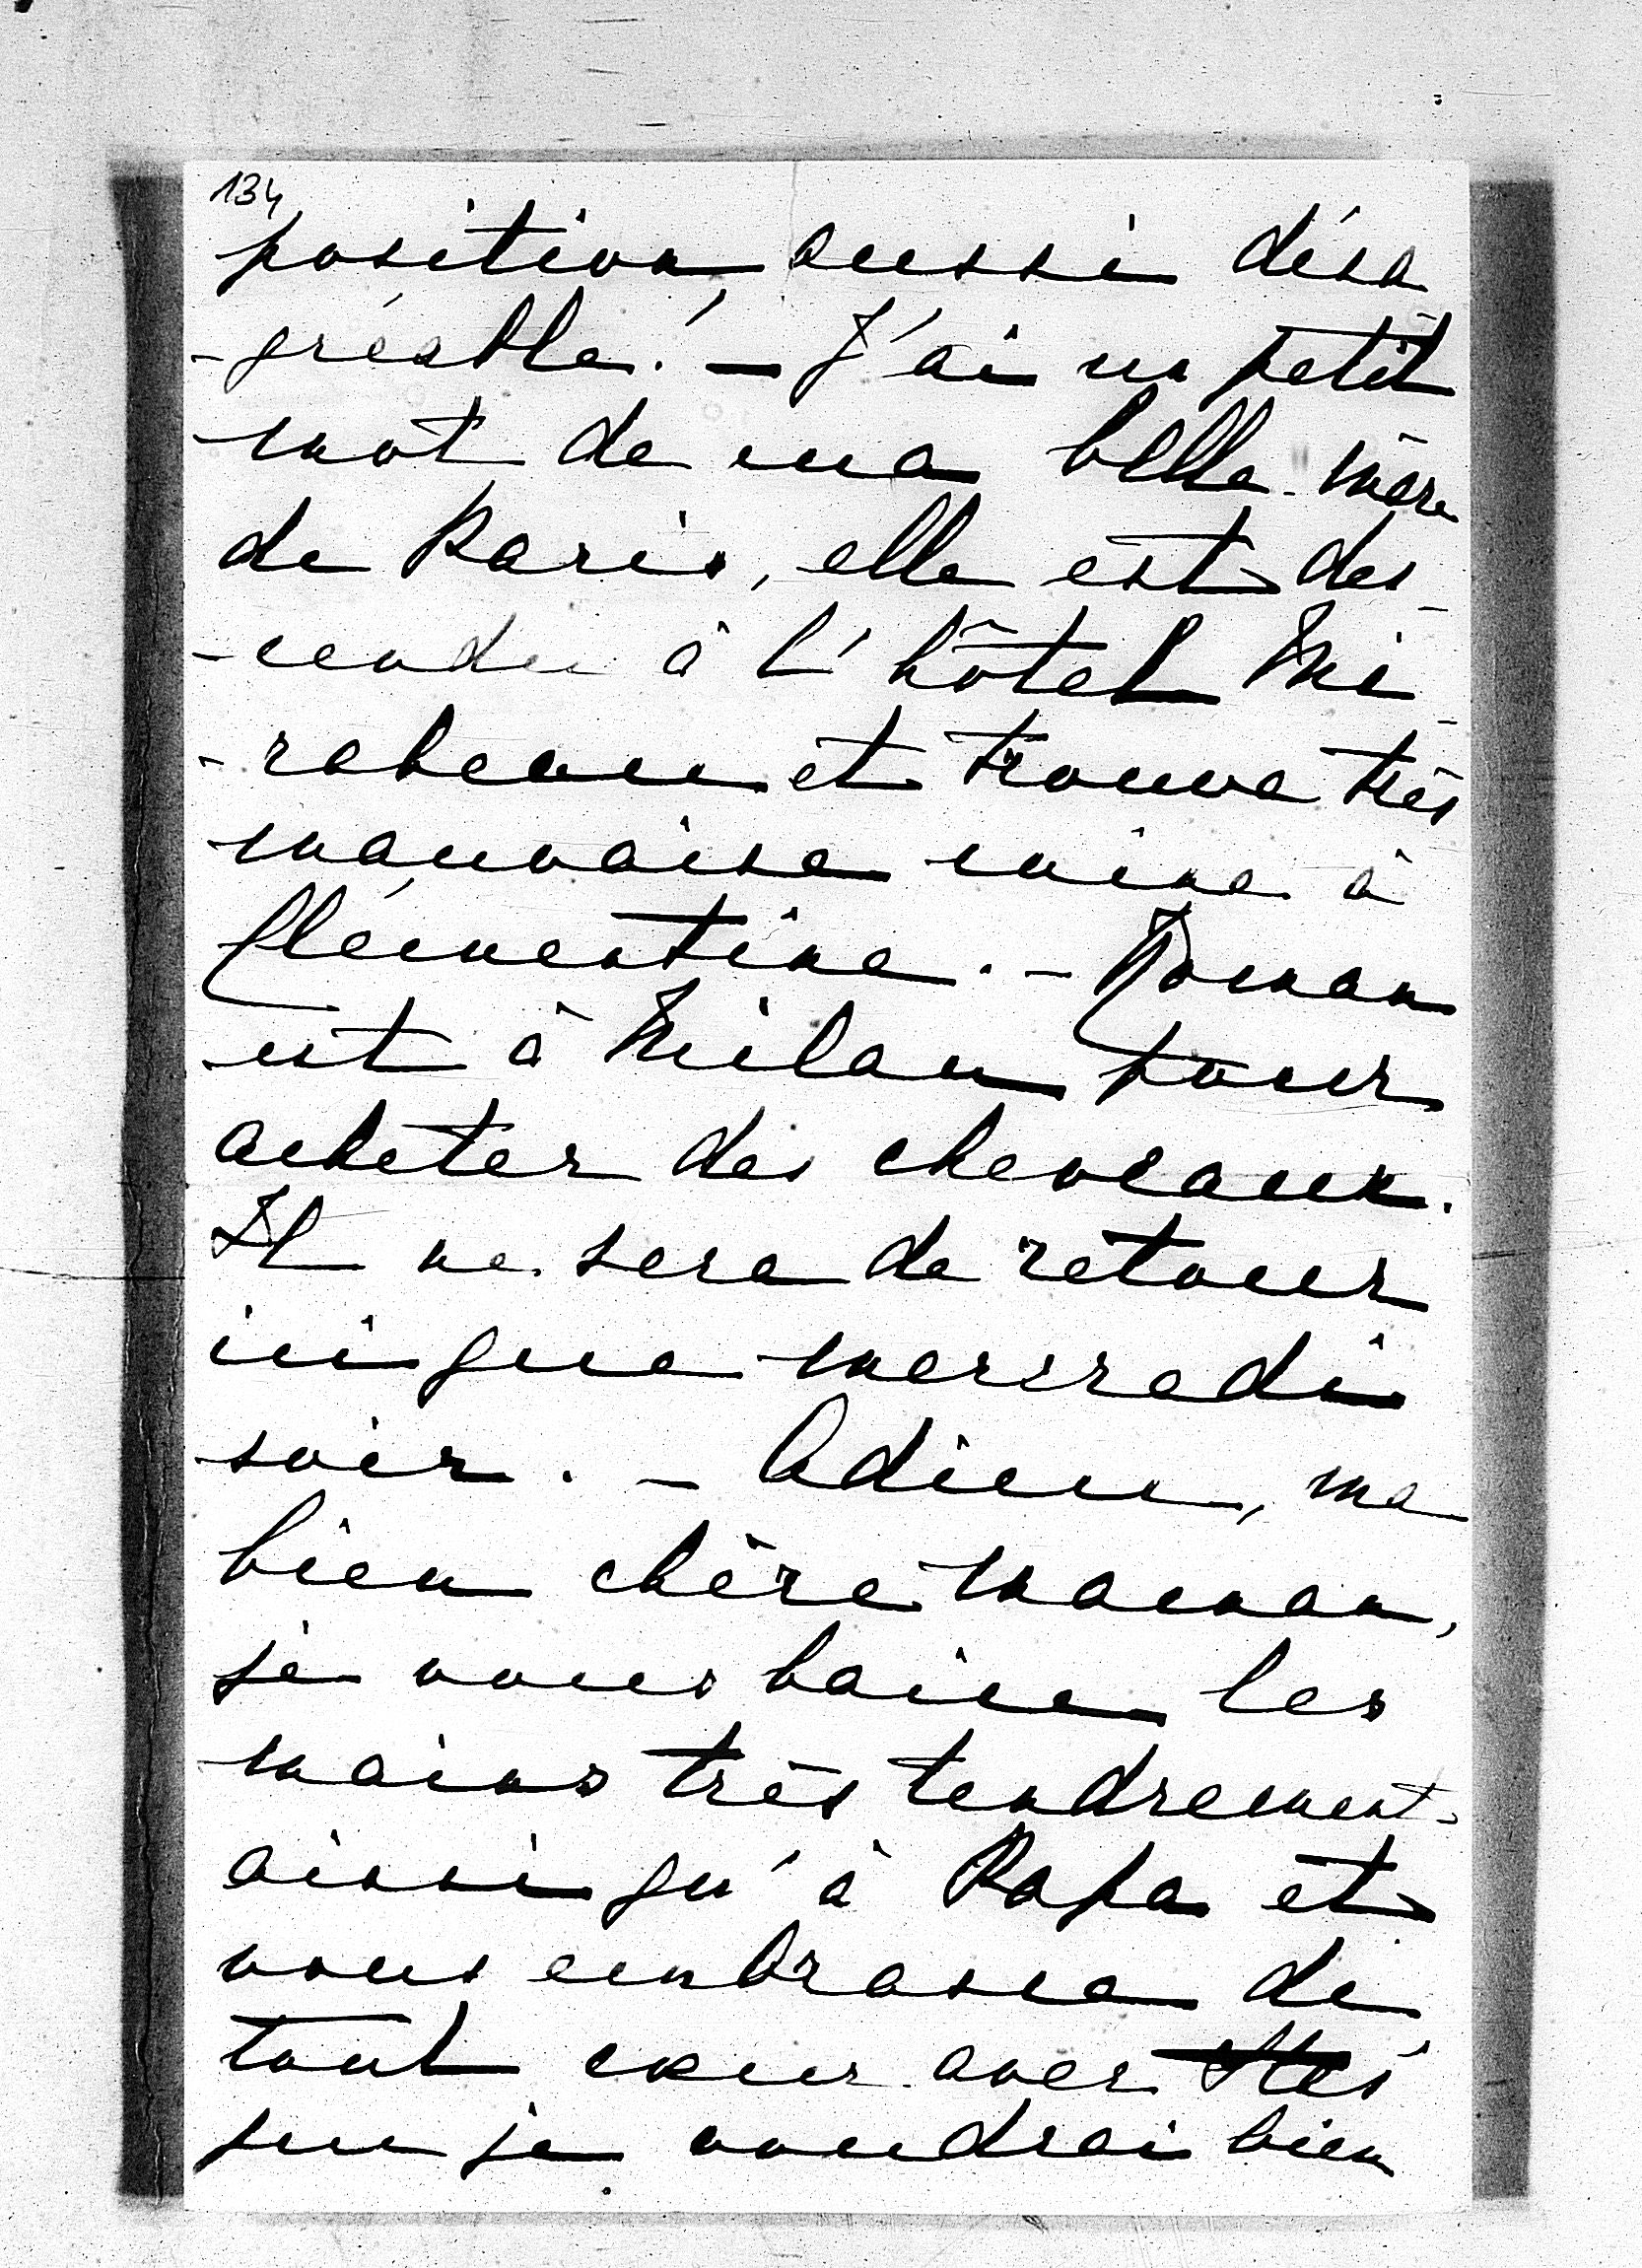 134
position, aussi désa
-gréable. — J'ai un petit
mot de ma belle-mère
de Paris, elle est des-
-cendu à l'hôtel Mi-
-rabeau et trouve très
mauvaise mine à
Clémentine. — Roman
est à Milan pour
acheter des cheveaux.
Il ne sera de retour
ici que mercredi
soir. — Adieu, ma
bien chère Maman,
je vous baise les
mains très tendrement
ainsi qu'à Papa et
vous embrasse de
tout cœur avec
que je voudrai bien